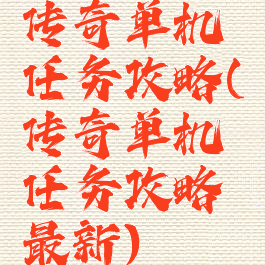 传奇单机
任务攻略(
传奇单机
任务攻略
最新)